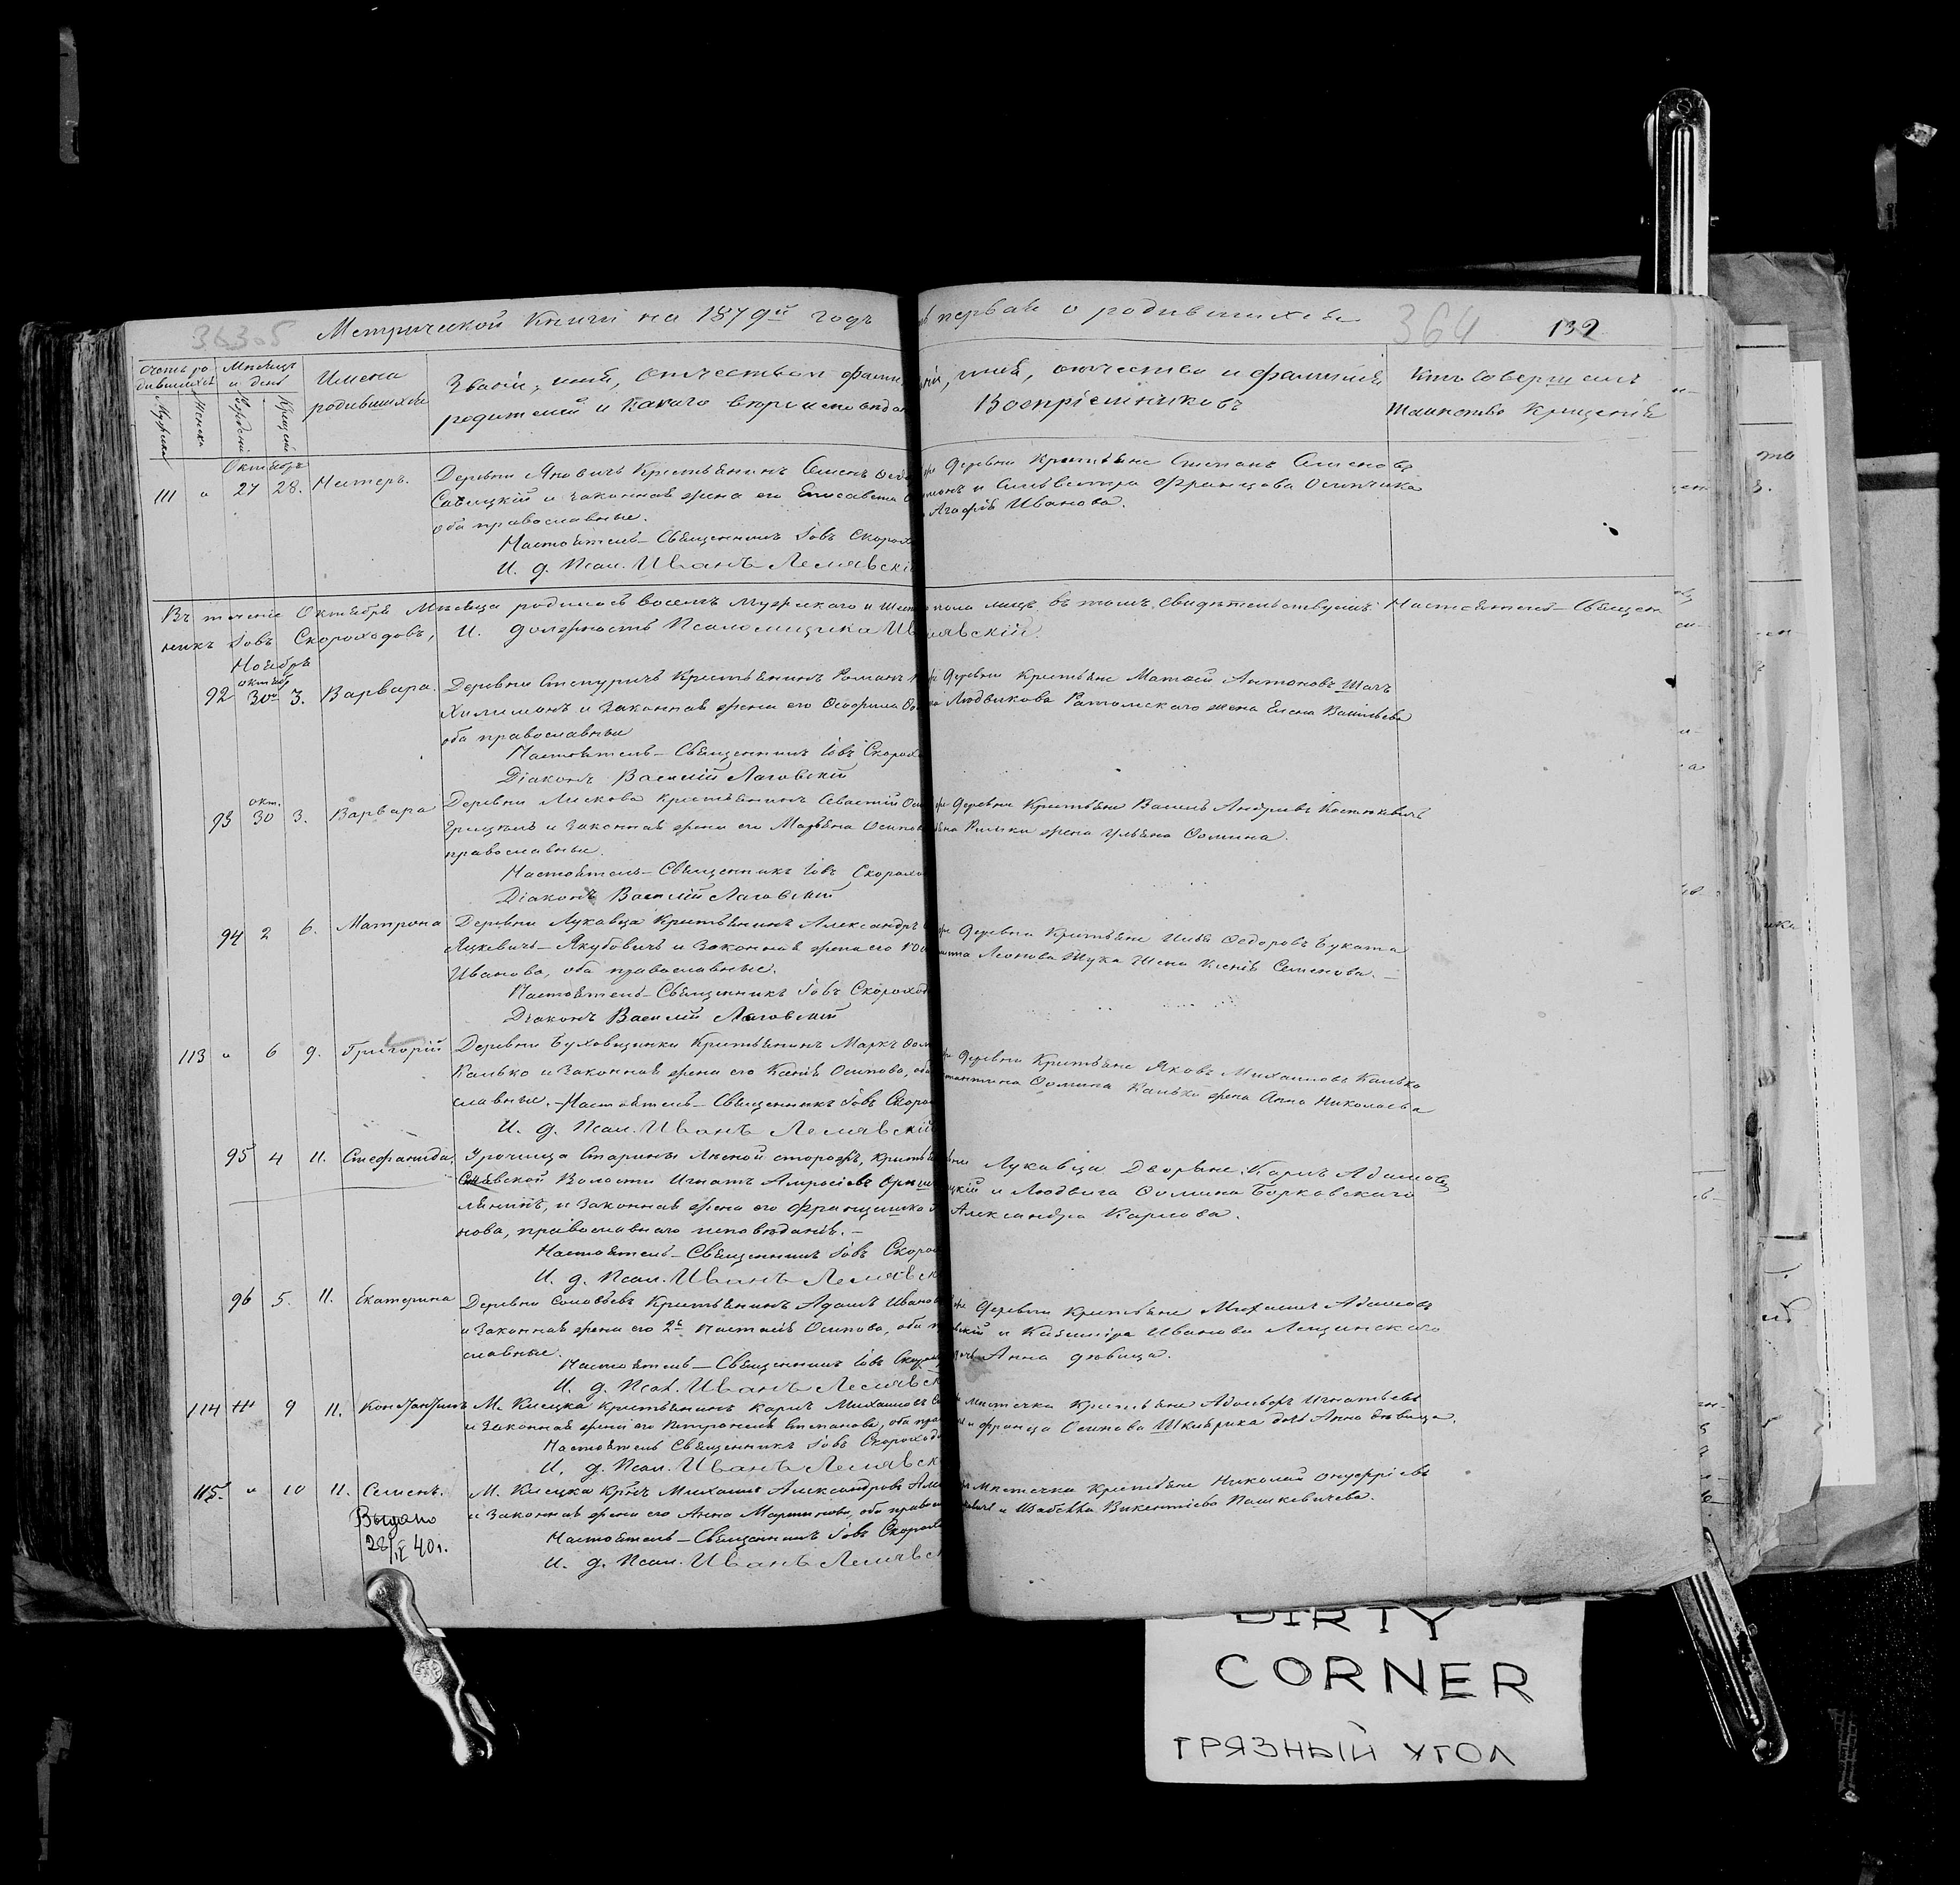 363 об
Метрической Книги на 1879й годъ
первая о родившихся
364
132
Счетъ родившихся
Мѣсяцъ и день
Имена родившихся
Званіе, имя, отчество и фами
родителей и какого вѣроисповѣдан
имя, отчество и фамилія
Воспріемниковъ
Кто совершалъ
таинство крещенія
Мужска
Женска
Рожденія
Крещенія
Октябрь
111 " 27 28. Нестеръ.
Деревни Яновичъ Крестьянинъ Семенъ
Савицкій и законная жена его Елисавета
оба православные.
Настоятель – Священникъ Іовъ Скорохо
И. д. Псал. Иванъ Лемявскі
деревни Крестьяне Степанъ Семеновъ
и Сильвестра Францова Осипчика
Агафія Иванова.
Въ теченіе Октября Мѣсяца родилось восемъ мужскаго и шест
пола лицъ, въ томъ свидѣтельствуемъ: Настоятель – Священ
никъ Іовъ Скороходовъ, И. должность Псаломщика Ив
мявскій.
Ноябрь
92 октяб. 30го 3. Варвара.
Деревни Степуричъ Крестьянинъ Романъ
Хилимонъ и законная жена его Ѳеофила
оба православные
Настоятель – Священникъ Іовъ Скорохо
Діаконъ Василій Лаговскій
деревни Крестьяне Матвей Антоновъ Шахъ
Людвикова Ратомскаго жена Елена Васильева
93 окт. 30 3. Варвара
Деревни Лискова крестьянинъ
и законная жена его Марьяна Осипов
православные.
Настоятель – Священникъ Іовъ Скорохо
Діаконъ Василій Лаговскій
деревни Крестьяне Василь Андреевъ Костюкевичъ
жена Ульяна Ѳомина.
94 2 6. Матрона
Деревни Лукавца Крестьянинъ Александръ
Яцкевичъ – Якубовичъ и законная жена его
Иванова, оба православные.
Настоятель – Священникъ Іовъ Скороход
Діаконъ Василій Лаговскій
деревни Крестьяне Илья Ѳедоровъ Буката
Леонова Шука жена Ксенія Семенова. –
113 " 6 9. Григорій
Деревни Буховщинки Крестьянинъ Маркъ Ѳом
Калько и законная жена его Ксенія Осипова, оба
славные. – Настоятель – Священникъ Іовъ Скоро
И. д. Псал. Иванъ Лемявскій
деревни Крестьяне Яковъ Михаиловъ Калько
стантина Ѳомина Калько жена Анна Николаева
95 4 11. Стефанида,
Урочища Старинъ лѣсной сторожъ, крестья
Волости Игнатъ Амросіевъ
и законная жена его Францишка
нова, православнаго исповѣданія. –
Настоятель – Священникъ Іовъ Скоро
И. д. Псал. Иванъ Лемявск
Лукавца Дворяне: Карлъ Адамовъ
цкій и Людвига Ѳомина Борковскаго
Александра Карлова.
96 5. 11. Екатерина
Деревни Соловьевъ Крестьянинъ Адамъ Иванов
и законная жена его 2я Настасія Осипова, оба п
славные.
Настоятель – Священникъ Іовъ Скоро
И. д. Псал. Иванъ Лемявск
деревни Крестьяне Михаилъ Адамовъ
скій и Казиміра Иванова Лещинскаго
дочь Анна дѣвица.
114 9 11. Константинъ
М. Клецка крестьянинъ Карлъ Михаиловъ
и законная жена его Петронеля Степанова, оба пра
Настоятель Священникъ Іовъ Скороходо
И. д. Псал. Иванъ Лемявск
мѣстечка Крестьяне Адольфъ Игнатьевъ
и Франца Осипова Шкабрика дочь Анна дѣвица.
115. " 10 11. Семенъ.
М. Клецка Крнъ Михаилъ Александровъ
и законная жена его Анна Мартинова, оба правос
Настоятель – Священникъ Іовъ Скорохо
И. д. Псал. Иванъ Лемявск
мѣстечка Крестьяне Николай Онуфріевъ
и Изабелла Викентіева Пашкевичева.
Выдано
28/IV 40г.
DIRTY
CORNER
ГРЯЗНЫЙ УГОЛ